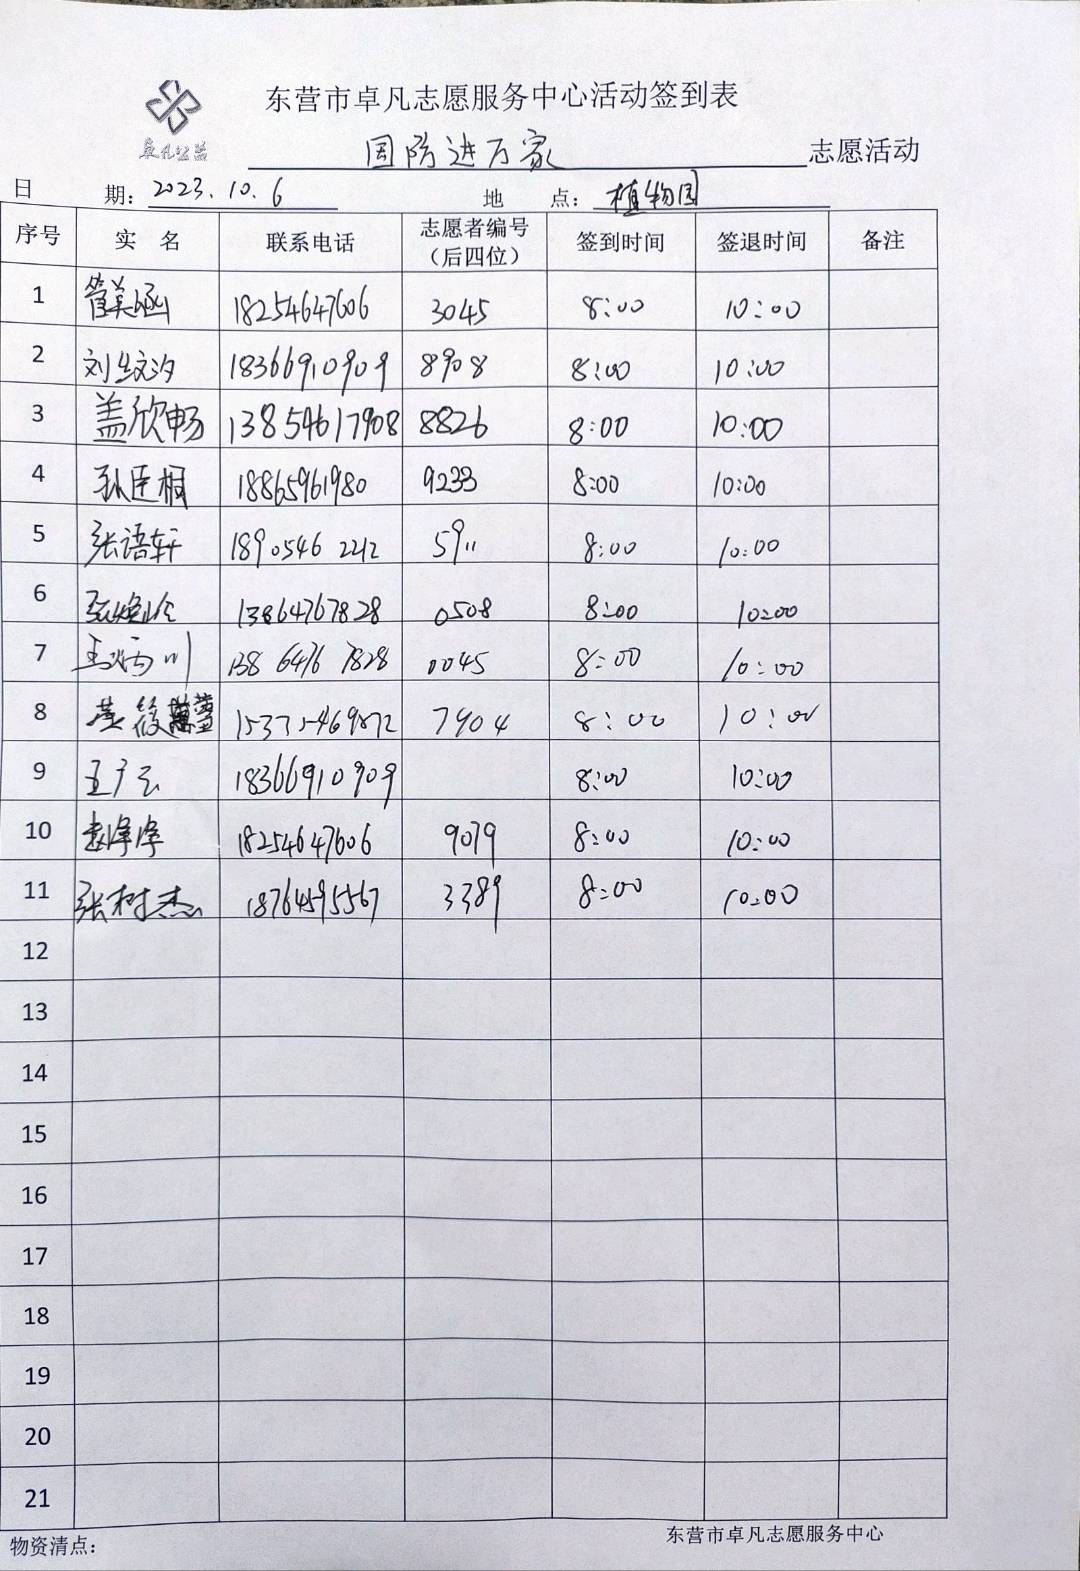 东营市卓凡志愿服务中心活动签到表
卓凡公益
国防进万家 志愿活动
日 期： 2023.10.6 地 点： 植物园
序号 实 名 联系电话 志愿者编号（后四位） 签到时间 签退时间 备注
1 管美涵 18254647606 3045 8:00 10:00
2 刘 汐 18366910909 8908 8:00 10:00
3 盖欣畅 13854617908 8826 8:00 10:00
4 孙臣桐 18865961980 9233 8:00 10:00
5 张语轩 18905462212 5911 8:00 10:00
6 13864767828 0508 8:00 10:00
7 川 138 6476 7828 0045 8:00 10:00
8 筱 15375469872 7904 8:00 10:00
9 王广云 18366910909 8:00 10:00
10 赵泽 18254647606 9079 8:00 10:00
11 张树杰 18764595567 3389 8:00 10:00
12
13
14
15
16
17
18
19
20
21
物资清点： 东营市卓凡志愿服务中心